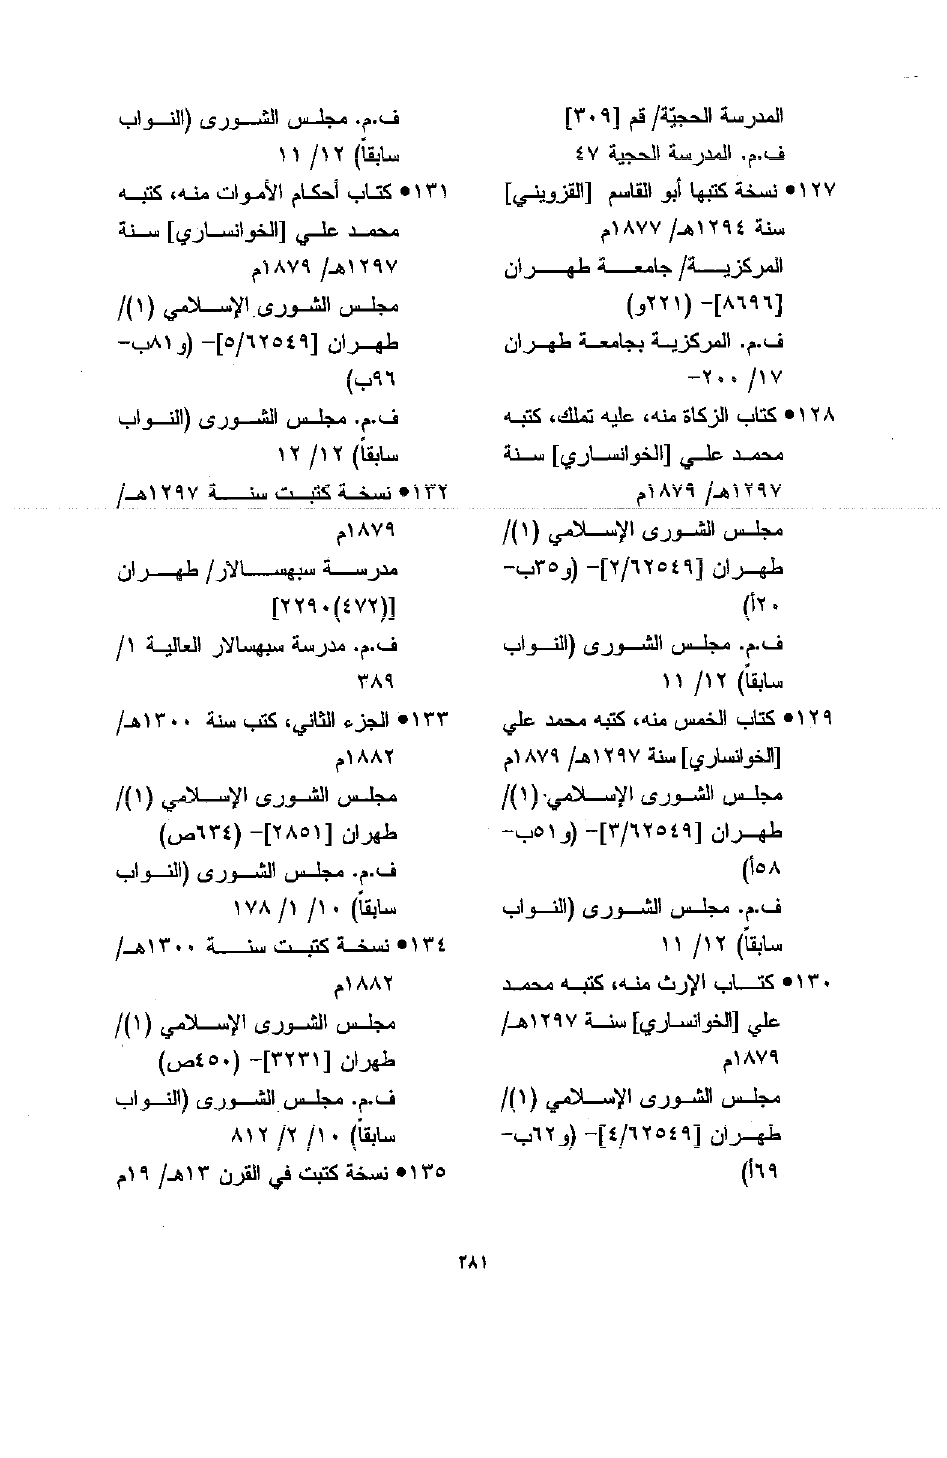 المدرسة الحجيّة/ قم [٣٠٩]
ف.م. المدرسة الحجية ٤٧
١٢٧• نسخة كتبها أبو القاسم [القزويني]
سنة ١٢٩٤هـ/ ١٨٧٧م
المركزيــة/ جامعــة طهــران
[٨٦٩٦]- (٢٢١و)
ف.م. المركزية بجامعة طهران
١٧/ ٢٠٠-
١٢٨• كتاب الزكاة منه، عليه تملك، كتبه
محمد علي [الخوانساري] سنة
١٢٩٧هـ/ ١٨٧٩م
مجلس الشورى الإسلامي (١)/
طهران [٢/٦٢٥٤٩]- (و٣٥ب-
٢٠أ)
ف.م. مجلس الشورى (النواب
سابقاً) ١٢/ ١١
١٢٩• كتاب الخمس منه، كتبه محمد علي
[الخوانساري] سنة ١٢٩٧هـ/ ١٨٧٩م
مجلس الشورى الإسلامي (١)/
طهران [٣/٦٢٥٤٩]- (و٥١ب-
٥٨أ)
ف.م. مجلس الشورى (النواب
سابقاً) ١٢/ ١١
١٣٠• كتاب الإرث منه، كتبه محمد
علي [الخوانساري] سنة ١٢٩٧هـ/
١٨٧٩م
مجلس الشورى الإسلامي (١)/
طهران [٤/٦٢٥٤٩]- (و٦٢ب-
٦٩أ)
ف.م. مجلس الشورى (النواب
سابقاً) ١٢/ ١١
١٣١• كتاب أحكام الأموات منه، كتبه
محمد علي [الخوانساري] سنة
١٢٩٧هـ/ ١٨٧٩م
مجلس الشورى الإسلامي (١)/
طهران [٥/٦٢٥٤٩]- (و٨١ب-
٩٦ب)
ف.م. مجلس الشورى (النواب
سابقاً) ١٢/ ١٢
١٣٢• نسخة كتبت سنة ١٢٩٧هـ/
١٨٧٩م
مدرسة سبهسالار/ طهران
[(٤٧٢)٢٢٩٠]
ف.م. مدرسة سبهسالار العالية ١/
٣٨٩
١٣٣• الجزء الثاني، كتب سنة ١٣٠٠هـ/
١٨٨٢م
مجلس الشورى الإسلامي (١)/
طهران [٢٨٥١]- (٦٣٤ص)
ف.م. مجلس الشورى (النواب
سابقاً) ١٠/ ١/ ١٧٨
١٣٤• نسخة كتبت سنة ١٣٠٠هـ/
١٨٨٢م
مجلس الشورى الإسلامي (١)/
طهران [٣٢٣١]- (٤٥٠ص)
ف.م. مجلس الشورى (النواب
سابقاً) ١٠/ ٢/ ٨١٢
١٣٥• نسخة كتبت في القرن ١٣هـ/ ١٩م
٢٨١